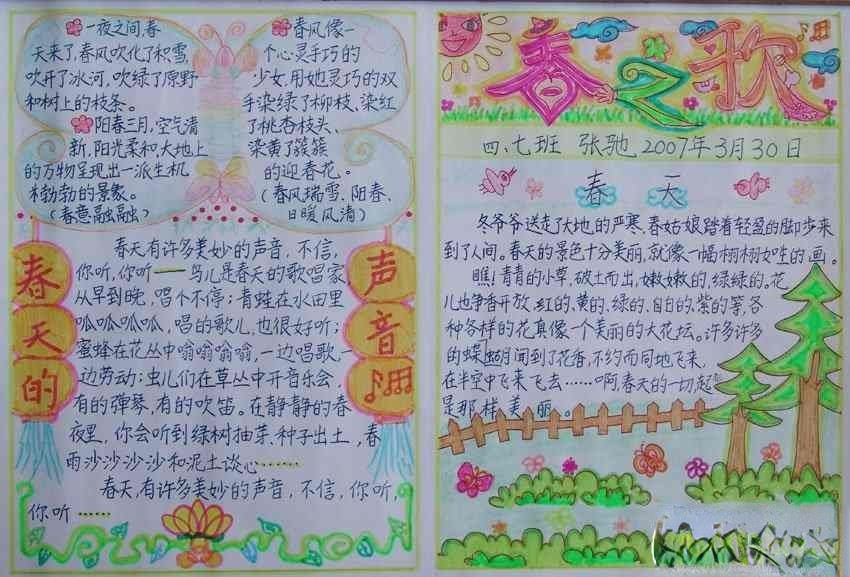 一夜之间,春
天来了,春风吹化了积雪,
吹开了冰河,吹绿了原野
和树上的枝条。
阳春三月,空气清
新,阳光柔和,大地上
的万物呈现出一派生机
勃勃的景象。
(春意融融)
春风像一
个心灵手巧的
少女,用她灵巧的双
手染绿了柳枝、染红
了桃杏枝头、
染黄了簇簇
的迎春花。
(春风瑞雪、阳春、
日暖风清)
春天的
声音
春天有许多美妙的声音,不信,
你听,你听——鸟儿是春天的歌唱家,
从早到晚,唱个不停;青蛙在水田里
呱呱呱呱,唱的歌儿,也很好听;
蜜蜂在花丛中嗡嗡嗡嗡,一边唱歌,一
边劳动;虫儿们在草丛中开音乐会,
有的弹琴,有的吹笛。在静静的春
夜里,你会听到绿树抽芽、种子出土,春
雨沙沙沙沙和泥土谈心……
春天,有许多美妙的声音,不信,你听,
你听……
春之歌
四.七班 张驰 2007年3月30日
春天
冬爷爷送走了大地的严寒,春姑娘踏着轻盈的脚步来
到了人间。春天的景色十分美丽,就像一幅栩栩如生的画。
瞧!青青的小草,破土而出,嫩嫩的,绿绿的。花
儿也争香开放,红的、黄的、绿的、白的、紫的等,各
种各样的花真像一个美丽的大花坛。许多许多
的蝶 间到了花香,不约而同地飞来,
在半空中飞来飞去……啊,春天的一切起
是那样美丽。